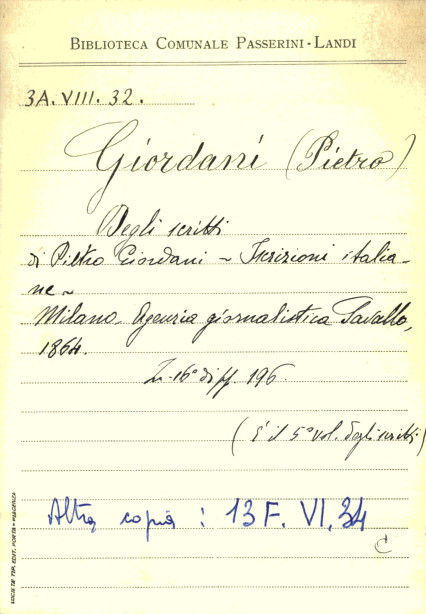 BIBLIOTECA COMUNALE PASSERINI-LANDI
3A. VIII. 32.
Giordani (Pietro)
Degli scritti
di Pietro Giordani ~ Iscrizioni italia-
ne ~
Milano. Agenzia giornalistica Savallo,
1864.
In-16° di pp. 196.
(È il 5° vol. degli scritti)
Altra copia : 13 F. VI. 34
C
SOCIETÀ TIP. EDIT. PORTA - PIACENZA